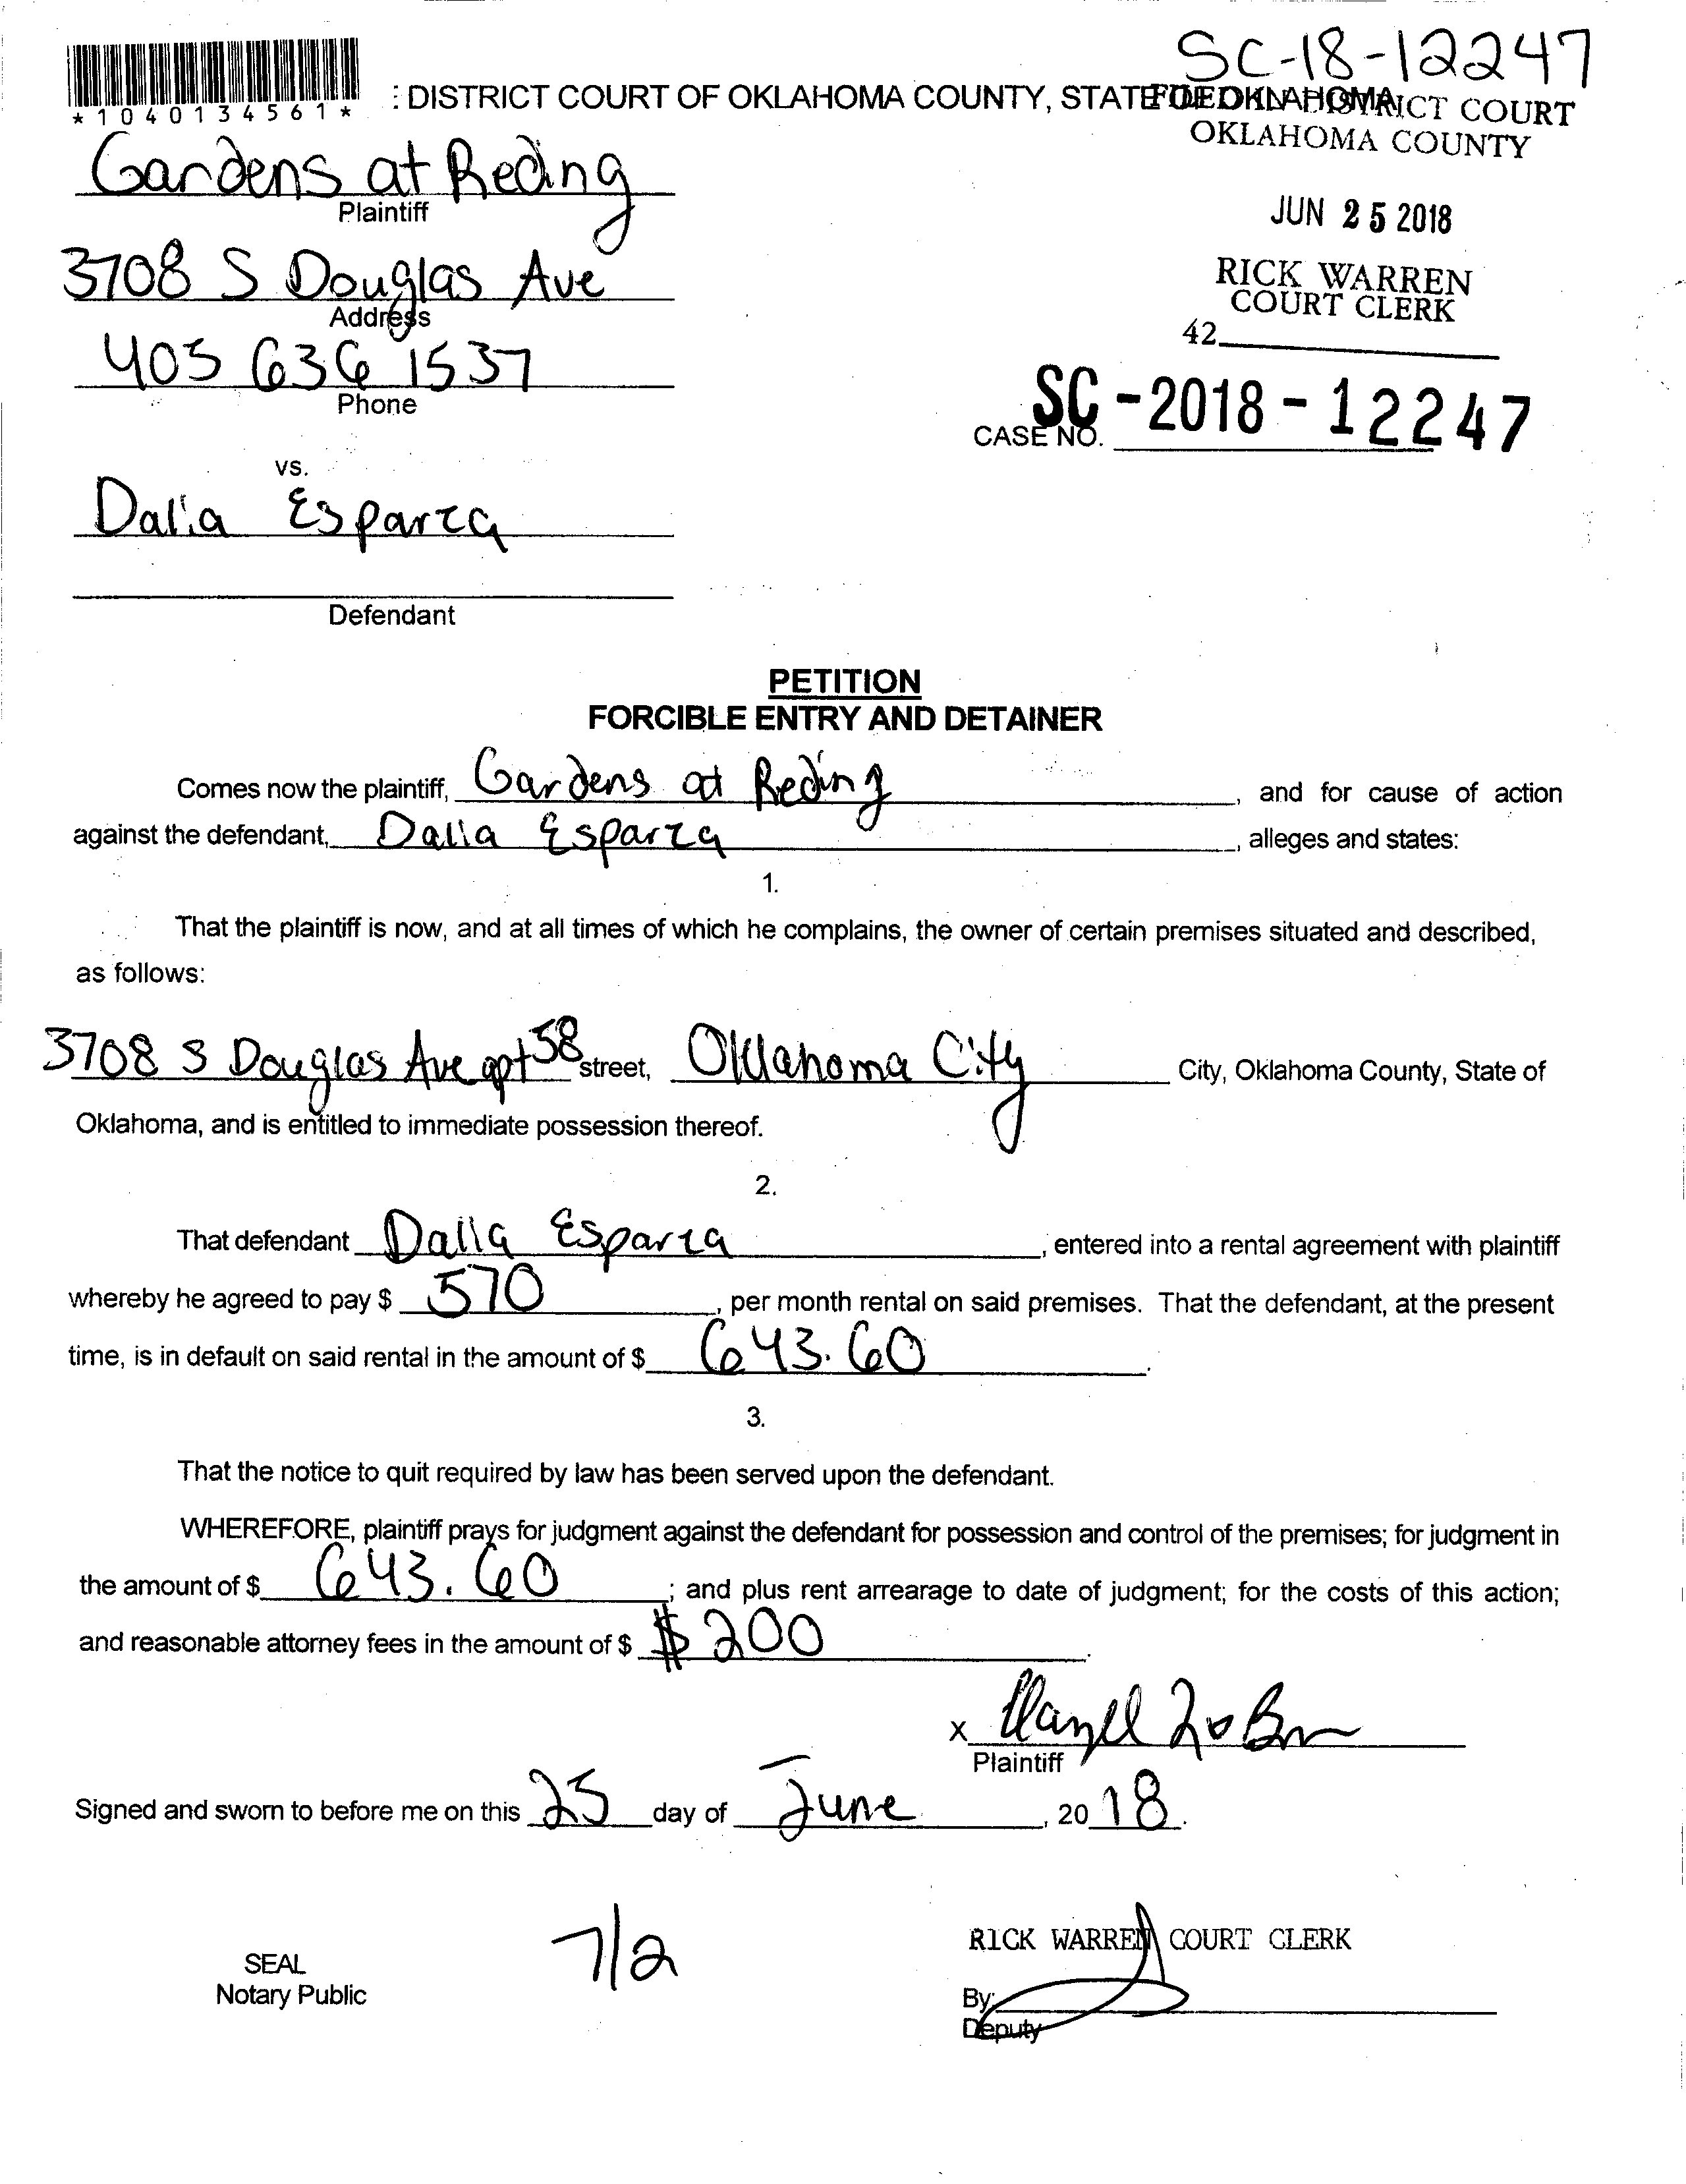 SC-18-12247
*1040134561*
: DISTRICT COURT OF OKLAHOMA COUNTY, STATE OF OKLAHOMA
FILED IN DISTRICT COURT
OKLAHOMA COUNTY
Gardens at Reding
Plaintiff
JUN 25 2018
3708 S Douglas Ave
Address
RICK WARREN
COURT CLERK
42
405 636 1537
Phone
SC-2018-12247
CASE NO.
vs.
Dalia Esparza
Defendant
PETITION
FORCIBLE ENTRY AND DETAINER
Comes now the plaintiff, Gardens at Reding, and for cause of action
against the defendant, Dalia Esparza, alleges and states:
1.
That the plaintiff is now, and at all times of which he complains, the owner of certain premises situated and described,
as follows:
3708 S Douglas Ave apt 58 street, Oklahoma City City, Oklahoma County, State of
Oklahoma, and is entitled to immediate possession thereof.
2.
That defendant Dalia Esparza, entered into a rental agreement with plaintiff
whereby he agreed to pay $ 570, per month rental on said premises. That the defendant, at the present
time, is in default on said rental in the amount of $ 643.60.
3.
That the notice to quit required by law has been served upon the defendant.
WHEREFORE, plaintiff prays for judgment against the defendant for possession and control of the premises; for judgment in
the amount of $ 643.60; and plus rent arrearage to date of judgment; for the costs of this action;
and reasonable attorney fees in the amount of $ $200.
X
Plaintiff
Signed and sworn to before me on this 25 day of June, 2018.
7/2
RICK WARREN COURT CLERK
SEAL
Notary Public
By:
Deputy